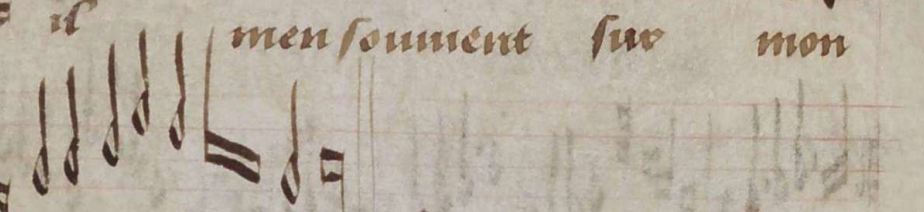 il men souuent sur mon